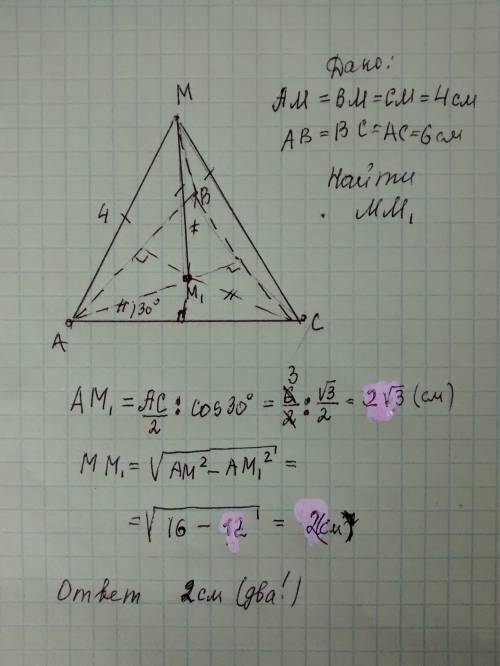 Дано:
AM = BM = CM = 4 см
AB = BC = AC = 6 см
Найти
MM₁
M
B
4
M₁
30°
A
C
AM₁ = AC/2 : cos30° = 6/2 : √3/2 = 2√3 (см)
3
MM₁ = √(AM² − AM₁²) =
= √(16 − 12) = 2(см)
Ответ 2см (два!)